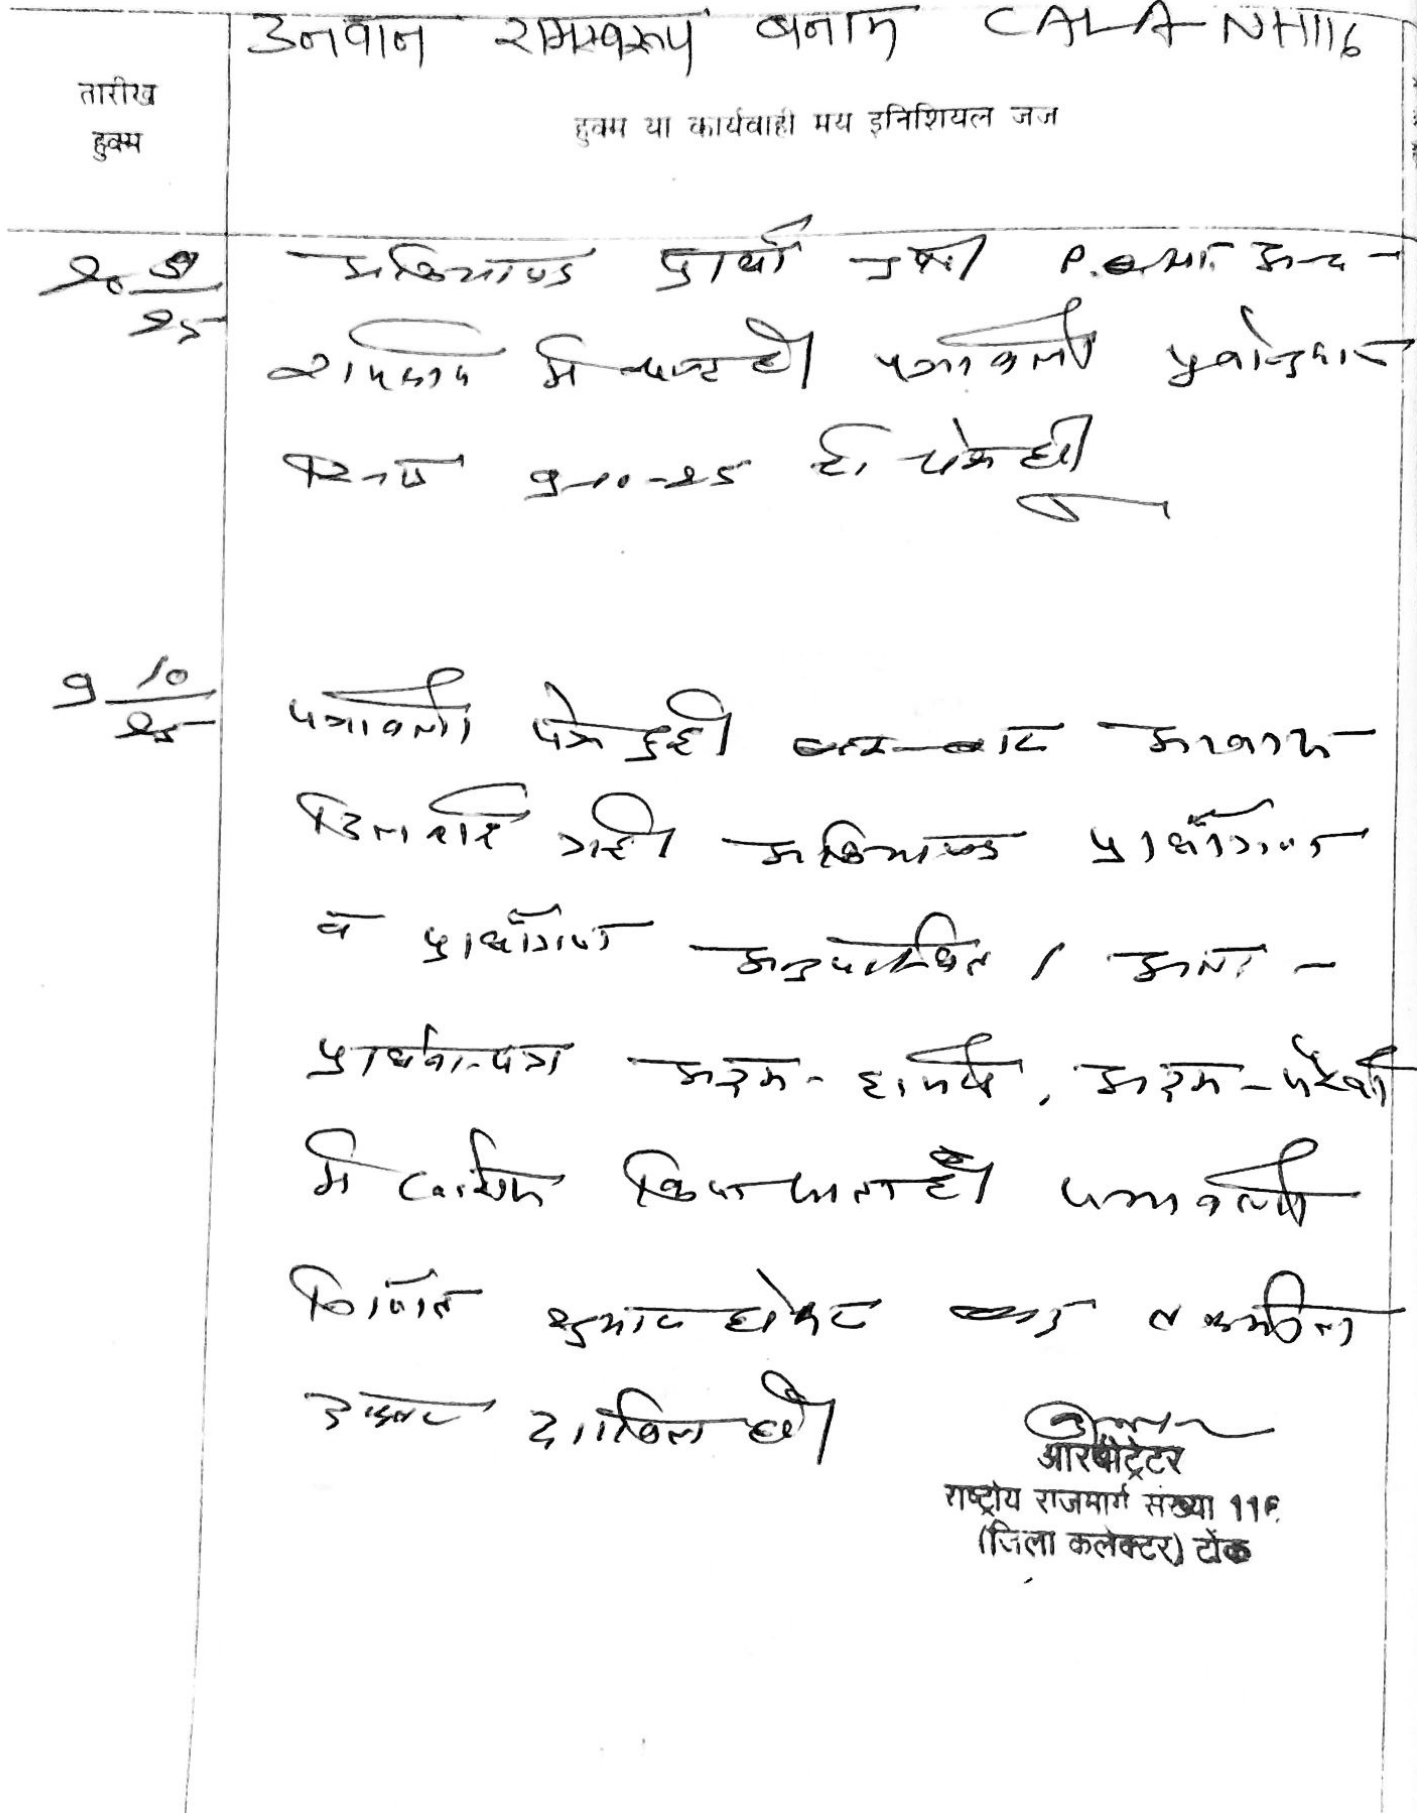 उनवान रामस्वरूप बनाम CALA NH116
तारीख
हुक्म
हुक्म या कार्यवाही मय इनिशियल जज
अभिभाषक प्रार्थी उप। P.O. अन्य
राजकार्य में व्यस्त है। पत्रावली पूर्वानुसार
दिनांक 9-10-25 को पेश हो।
9 10/25
पत्रावली पेश हुई। बार-बार आवाज
दिलवाई गई। अभिभाषक प्रार्थीगण
व प्रार्थीगण अनुपस्थित। अतः
प्रार्थना-पत्र अदम-हाजरी, अदम-पैरवी
में खारिज किया जाता है। पत्रावली
निर्णित शुमार होकर बाद तकमील
दफ्तर दाखिल हो।
आरबीट्रेटर
राष्ट्रीय राजमार्ग संख्या 116
(जिला कलेक्टर) टोंक